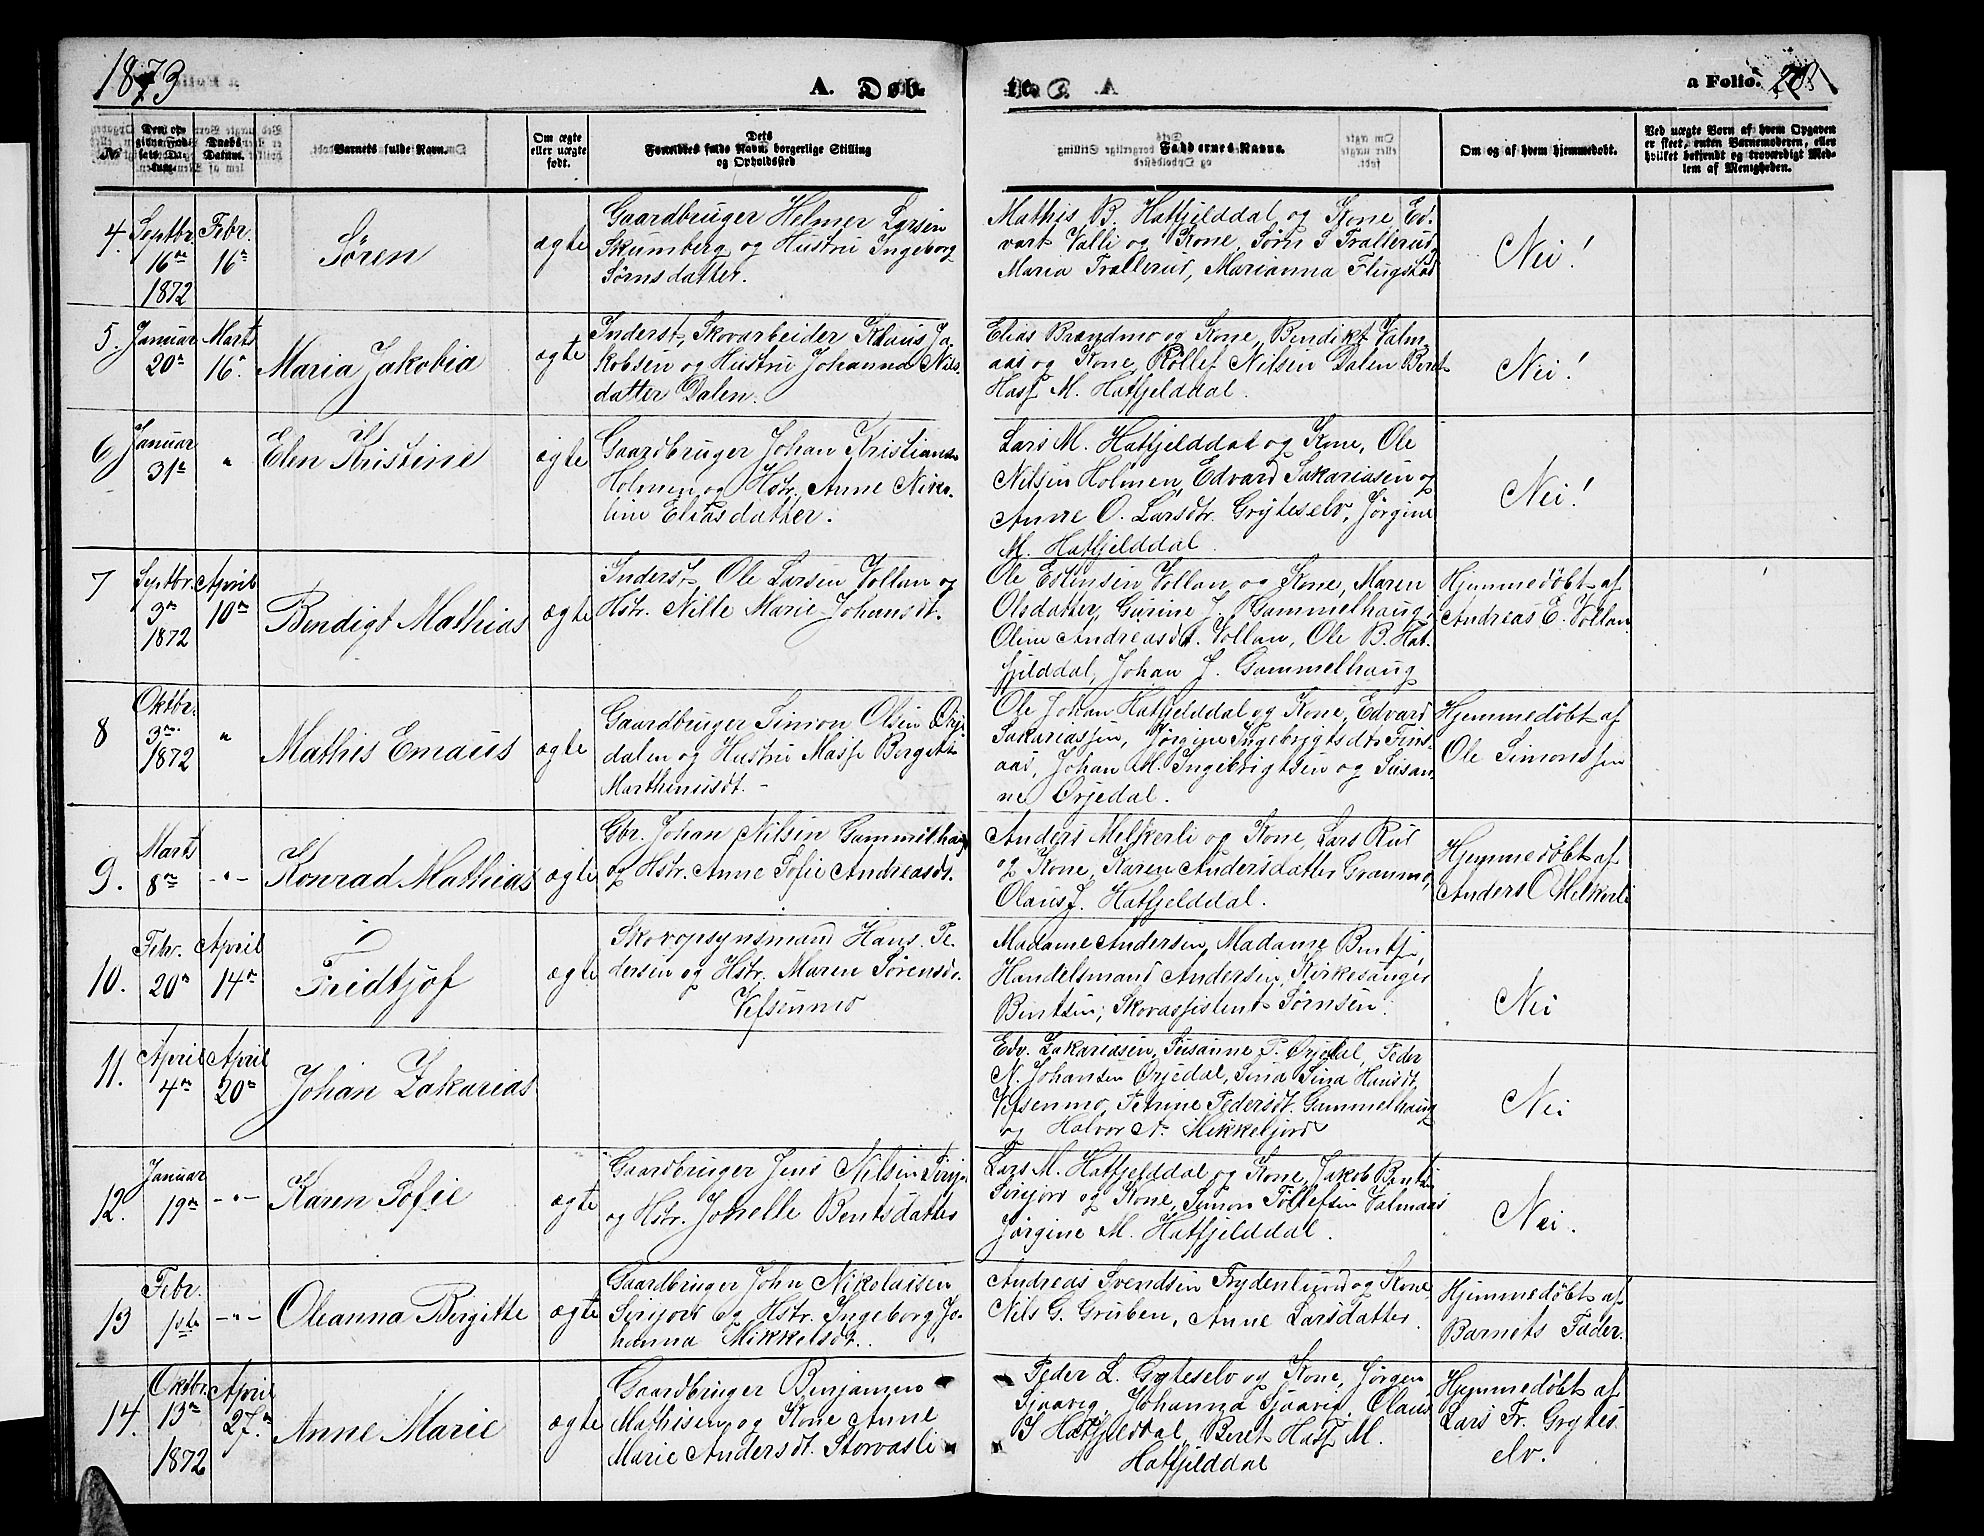 1873
A. Døb-
te.
a Folio. 28
No
Den opgivne Fødselsdag.
Daabs Datum.
Barnets fulde Navn.
Om ægte eller uægte født.
Dets Forældres fulde Navn, borgerlige Stilling og Opholdssted
Faddernes Navne.
Om og af hvem hjemmedøbt.
Ved uægte Børn af hvem Opgaven er skeet, enten Barnemoderen, eller hvilket bekjendt og troværdigt Medlem af Menigheden.
4. Septbr. 16de 1872
Febr. 16de
Søren
ægte
Gaardbruger Helmer Larsen
Skumberg og Hustru Ingeborg
Sørnsdatter.
Mathis B. Hatfjelddal og Kone, Ed-
vart Valli og Kone, Sørn S Trallerud,
Maria Trallerud, Marianna Flugstad
Nei!
5. Januar 20de
Marts 16de
Maria Jakobia
ægte
Inderst, Skovarbeider Klaus Ja-
kobsen og Hustru Johanna Nils-
datter Dalen.
Elias Brændmo og Kone, Bendikt Valm-
aas og Kone, Rollef Nilsen Dalen Beret
Hasf M. Hatfjelddal.
Nei!
6 Januar 31te
"
Elen Kristine
ægte
Gaardbruger Johan Kristians-
Holmen og Hstr. Anne Niko-
line Eliasdatter.
Lars M. Hatfjelddal og Kone, Ole
Nilsen Holmen, Edvard Sakariasen og
Anne O. Larsdtr. Gryteselv, Jørgine
M. Hatfjelddal.
Nei!
7 Septbr. 3de 1872
April 10de
Bendigt Mathias
ægte
Inderst Ole Larsen Vollan og
Hstr. Nille Marie Johansdt.
Ole Estensen Vollan og Kone, Maren
Olsdatter, Gurine J. Gammelhaug,
Oline Andreasdt. Vollan, Ole B. Hat-
fjelddal, Johan J. Gammelhaug
Hjemmedøbt af
Andreas E. Vollan
8 Oktbr. 3de 1872
"
Mathis Emaus
ægte
Gaardbruger Simon Olsen Ørje-
dalen og Hustru Masse Bergitte
Marthinusdt. -
Ole Johan Hatfjelddal og Kone, Edvard
Sakariassen, Jørgine Ingebrigtsdtr Fins-
aas, Johan M. Ingebrigtsen og Susan-
ne Ørjedal.
Hjemmedøbt af
Ole Simonssen
9. Marts 8de
-"-
Konrad Mathias
ægte
Gbr. Johan Nilsen Gammelhaug
og Hstr. Anne Sofie Andreasdt.
Anders Melkerli og Kone, Lars Rus
og Kone, Karen Andersdatter Granmo,
Olaus J. Hatfjelddal.
Hjemmedøbt af
Anders O Melkerli
10. Febr. 20de
April 14de
Fridtjof
ægte
Skovopsynsmand Hans Pe-
dersen og Hstr. Maren Sørensdt.
Vefsenmo
Madame Andersen, Madame Bentsen,
Handelsmand Andersen, Kirkesanger
Bentsen, Skovassistent Sørnsen.
Nei
11. April 4de
April 20de
Johan Zakarias
Edv. Zakariasen, Susanne P. Ørjedal, Peder
N. Johansen Ørjedal, Sina Sina Hansdt,
Vefsenmo, Petrine Pedersdt. Gammelhaug
og Halvor A. Mikkeljord
Nei
12. Januar 19de
-"-
Karen Sofie
ægte
Gaardbruger Jens Nilsen Serijor
og Hstr. Jonelle Bentsdatter
Lars M. Hatfjelddal og Kone, Jakob Bentsen
Serijord og Kone, Simon Tollefsen Valmaas
Jørgine M. Hatfjelddal.
Nei.
13 Febr. 1ste
-"-
Oleanna Bergitte
ægte
Gaardbruger John Nikolaisen
Serijord og Hstr. Ingeborg Jo-
hanna Mikkelsdt.
Andreas Svendsen Frydenlund og Kone,
Nils G. Gruben, Anne Larsdatter.
Hjemmedøbt af
Barnets Fader.
14. Oktbr. 13de 1872
April 27de
Anne Marie
ægte
Gaardbruger Benjamin
Mathisen og Kone Anne
Marie Andersdt. Storvasli
Peder L. Gryteselv og Kone, Jørgen
Sjaavig, Johanna Sjaavig, Olaus
J Hatfjelddal, Beret Hasf M.
Hatfjelddal
Hjemmedøbt af
Lars Fr. Grytes-
elv.